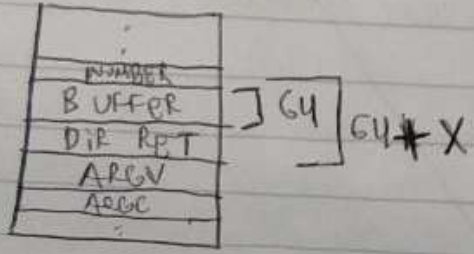 NUMBER
BUFFER
DIR RET
ARGV
ARGC
64
64+ X